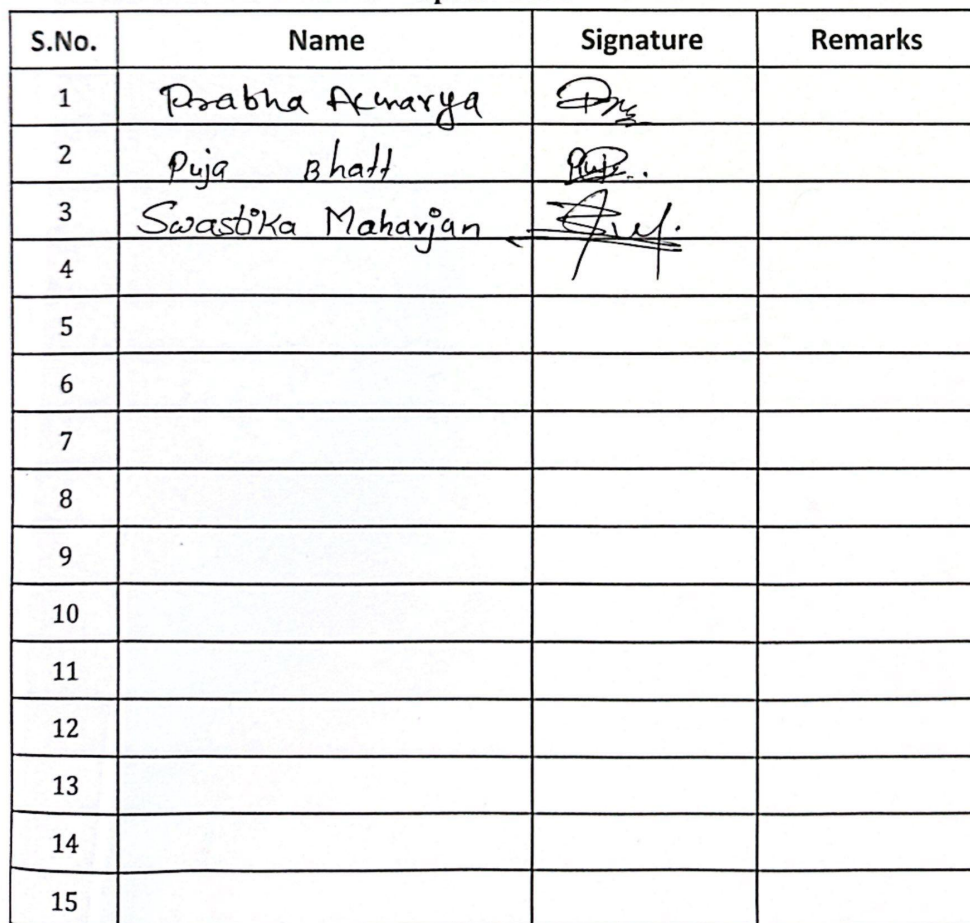 S.No. Name Signature Remarks
1 Prabha Acharya
2 Puja Bhatt
3 Swastika Maharjan
4
5
6
7
8
9
10
11
12
13
14
15